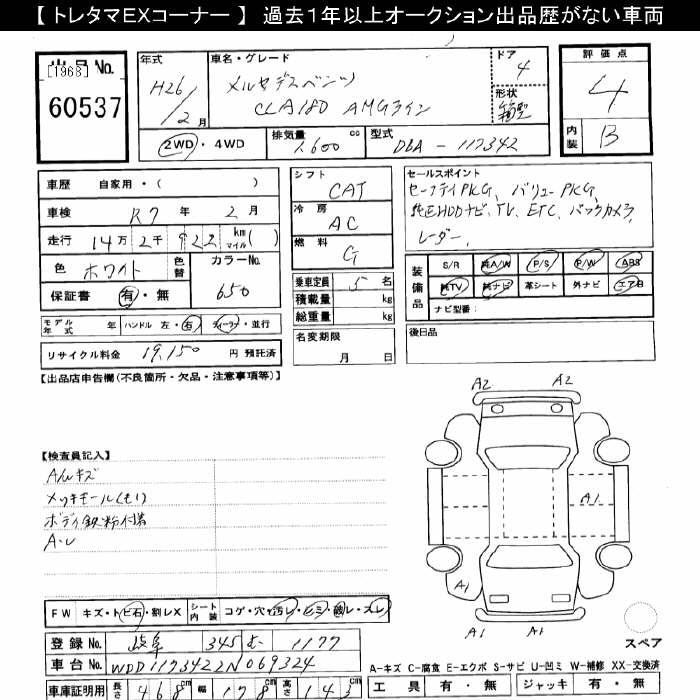 【 トレタマEXコーナー 】 過去１年以上オークション出品歴がない車両
出品 No.
[1968]
60537
年式
H26/2月
車名・グレード
メルセデスベンツ
CLA180 AMGライン
ドア
4
形状
箱型
評価点
4
内装
B
2WD・4WD
排気量
1,600 cc
型式
DBA - 117342
車歴 自家用・( )
車検 R7 年 2 月
走行 14万 2千 922 km マイル( )
色 ホワイト
色替
カラーNo.
650
保証書 有・無
シフト
CAT
冷房
AC
燃料
G
セールスポイント
セーフティPKG、バリューPKG、
純正HDDナビ、TV、ETC、バックカメラ、
レーダー、
装備品
S/R 純A/W P/S P/W ABS
純TV 純ナビ 革シート 外ナビ エアB
ナビ型番：
乗車定員 5 名
積載量 kg
総重量 kg
モデル年式 年 ハンドル 左・右 ディーラー・並行
名変期限
月 日
後日品
リサイクル料金 19,150 円 預託済
【出品店申告欄(不良箇所・欠品・注意事項等)】
A2 A2
【検査員記入】
A/Wキズ
メッキモール(モリ)
ボディ鉄粉付着
A・U
A1
A1
A1 A1
スペア
FW キズ・トビ石・割レX
シート内装 コゲ・穴・汚レ・ヒミ・破レ・スレ
登録 No. 岐阜 345 む 1177
車台 No. WDD1173422N069324
A-キズ C-腐食 E-エクボ S-サビ U-凹ミ W-補修 XX-交換済
車庫証明用 長さ 468 cm 幅 178 cm 高さ 143 cm
工具 有・無 ジャッキ 有・無